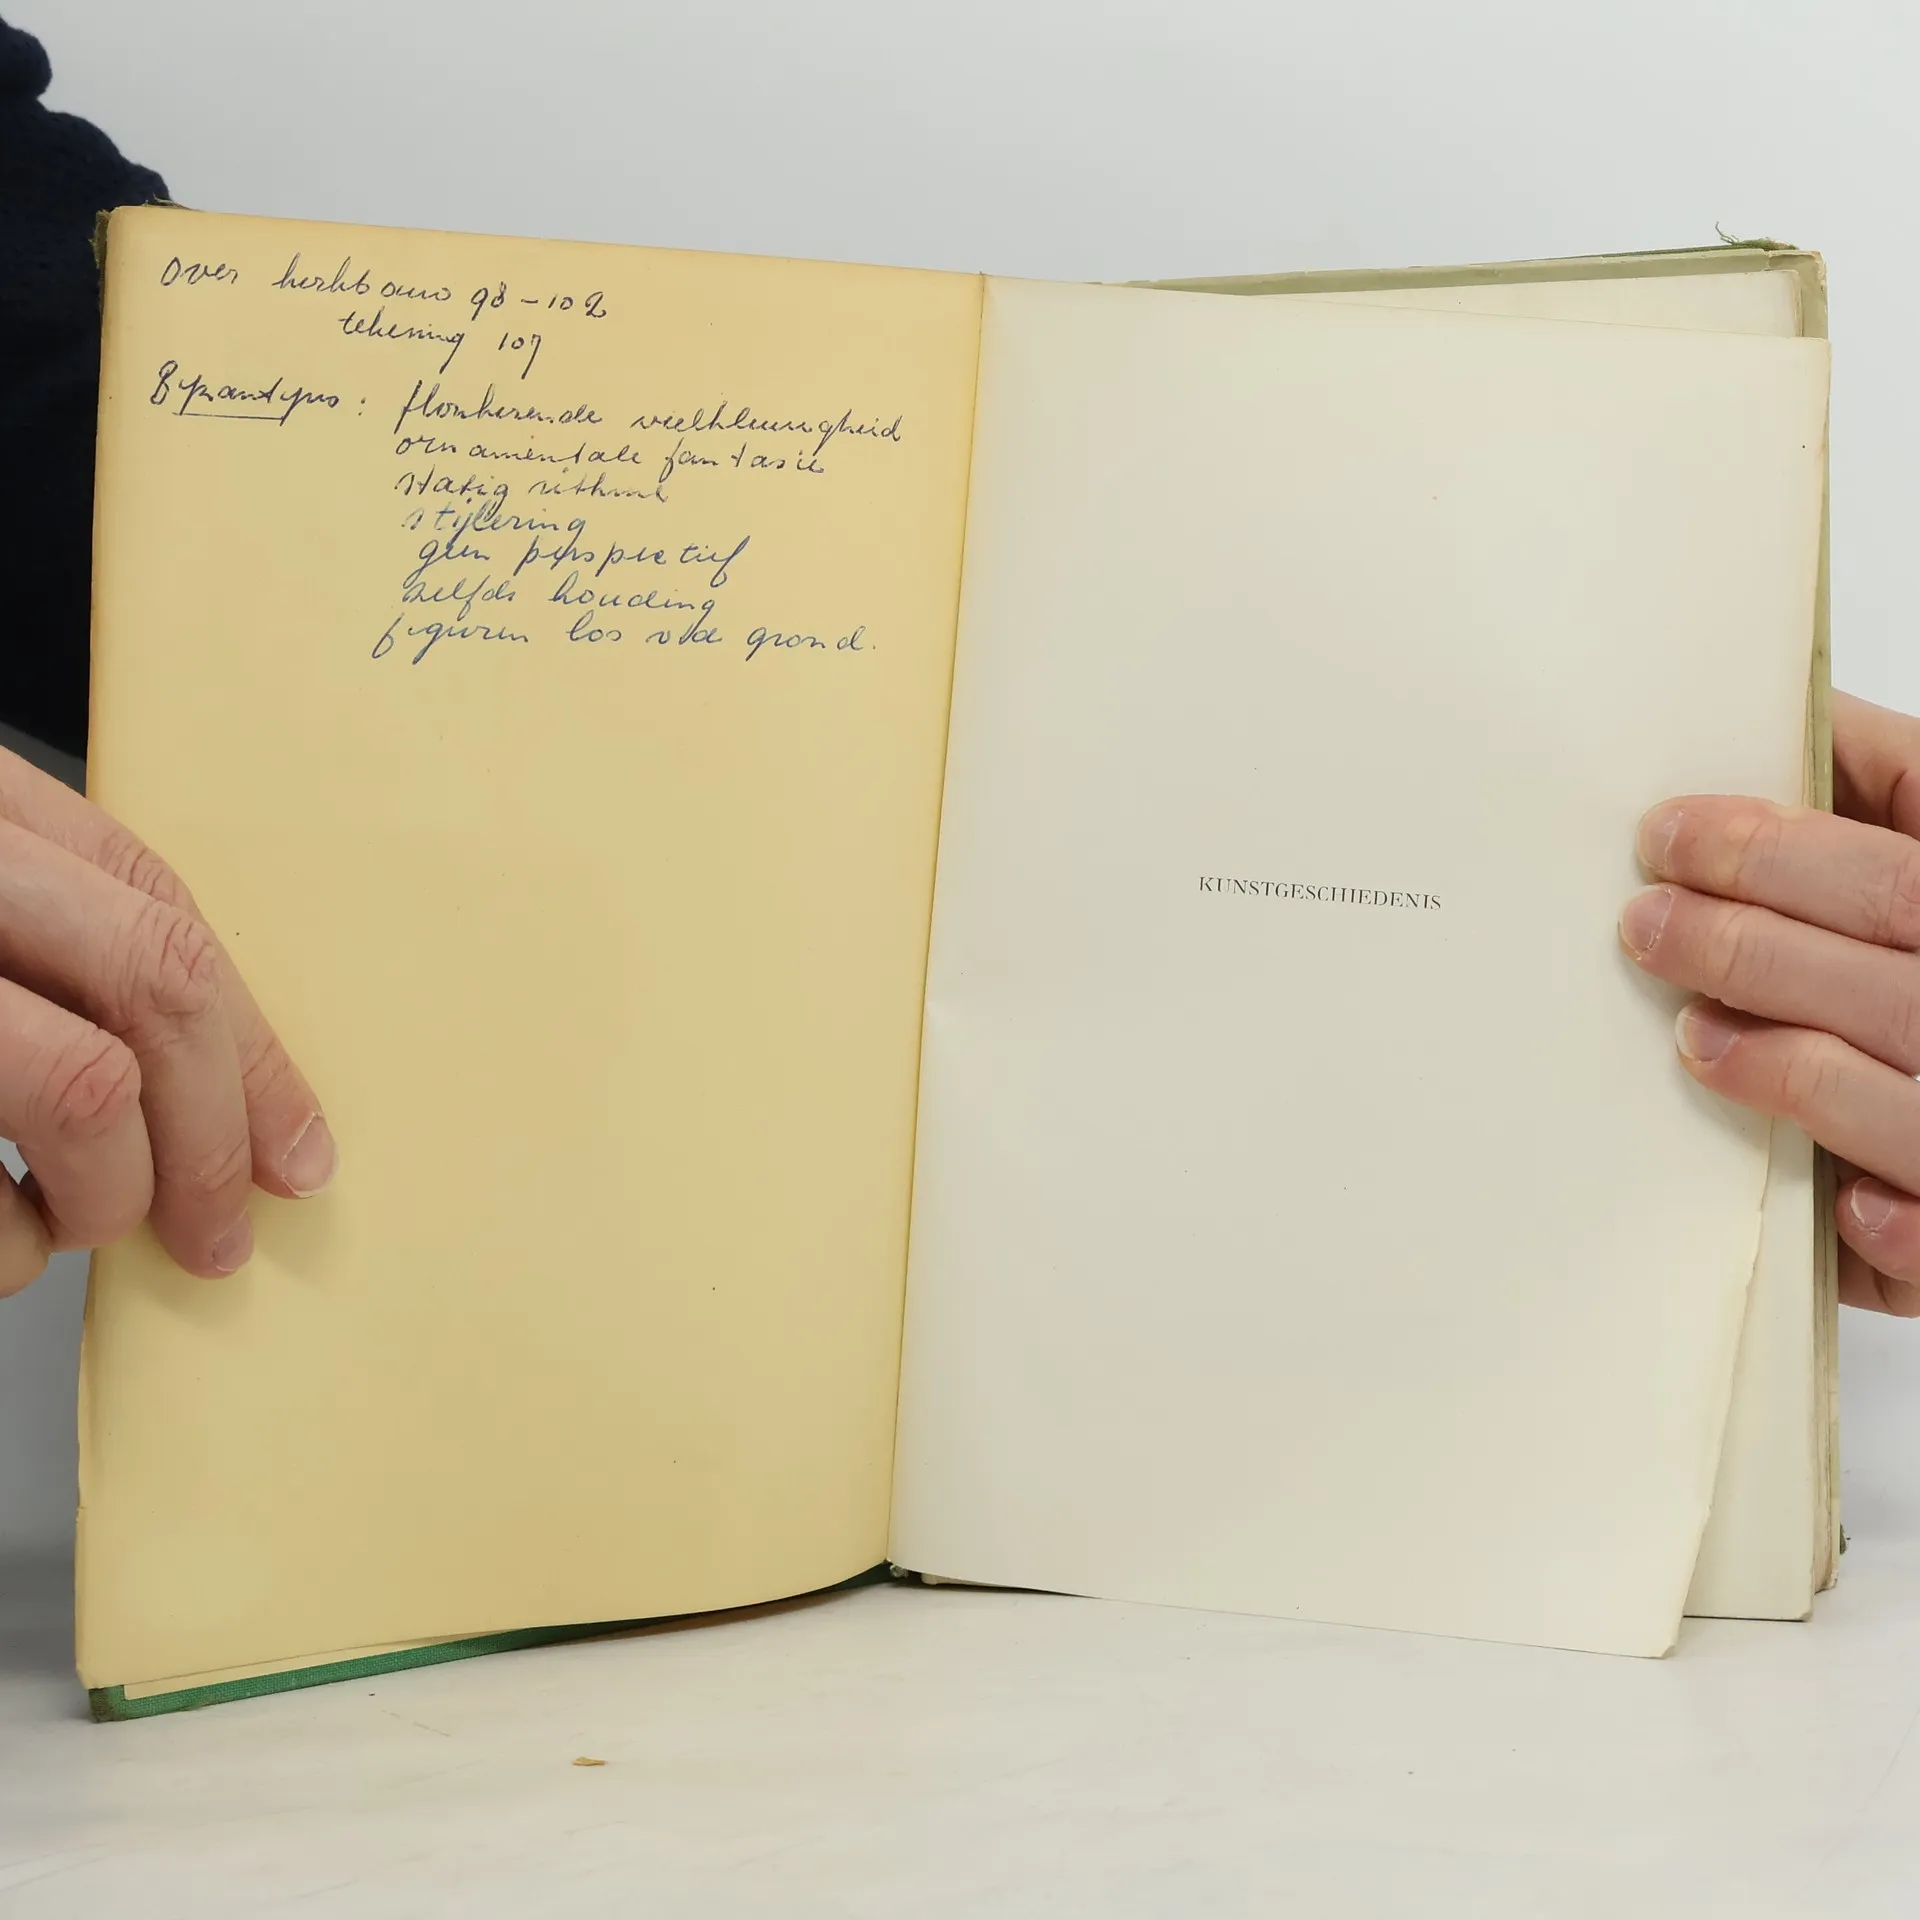 over kerkbouw 98 - 102
tekening 107
Byzantijns : flonkerende veelkleurigheid
ornamentale fantasie
statig rithme
stijlering
geen perspectief
zelfde houding
figuren los v/d grond.
KUNSTGESCHIEDENIS